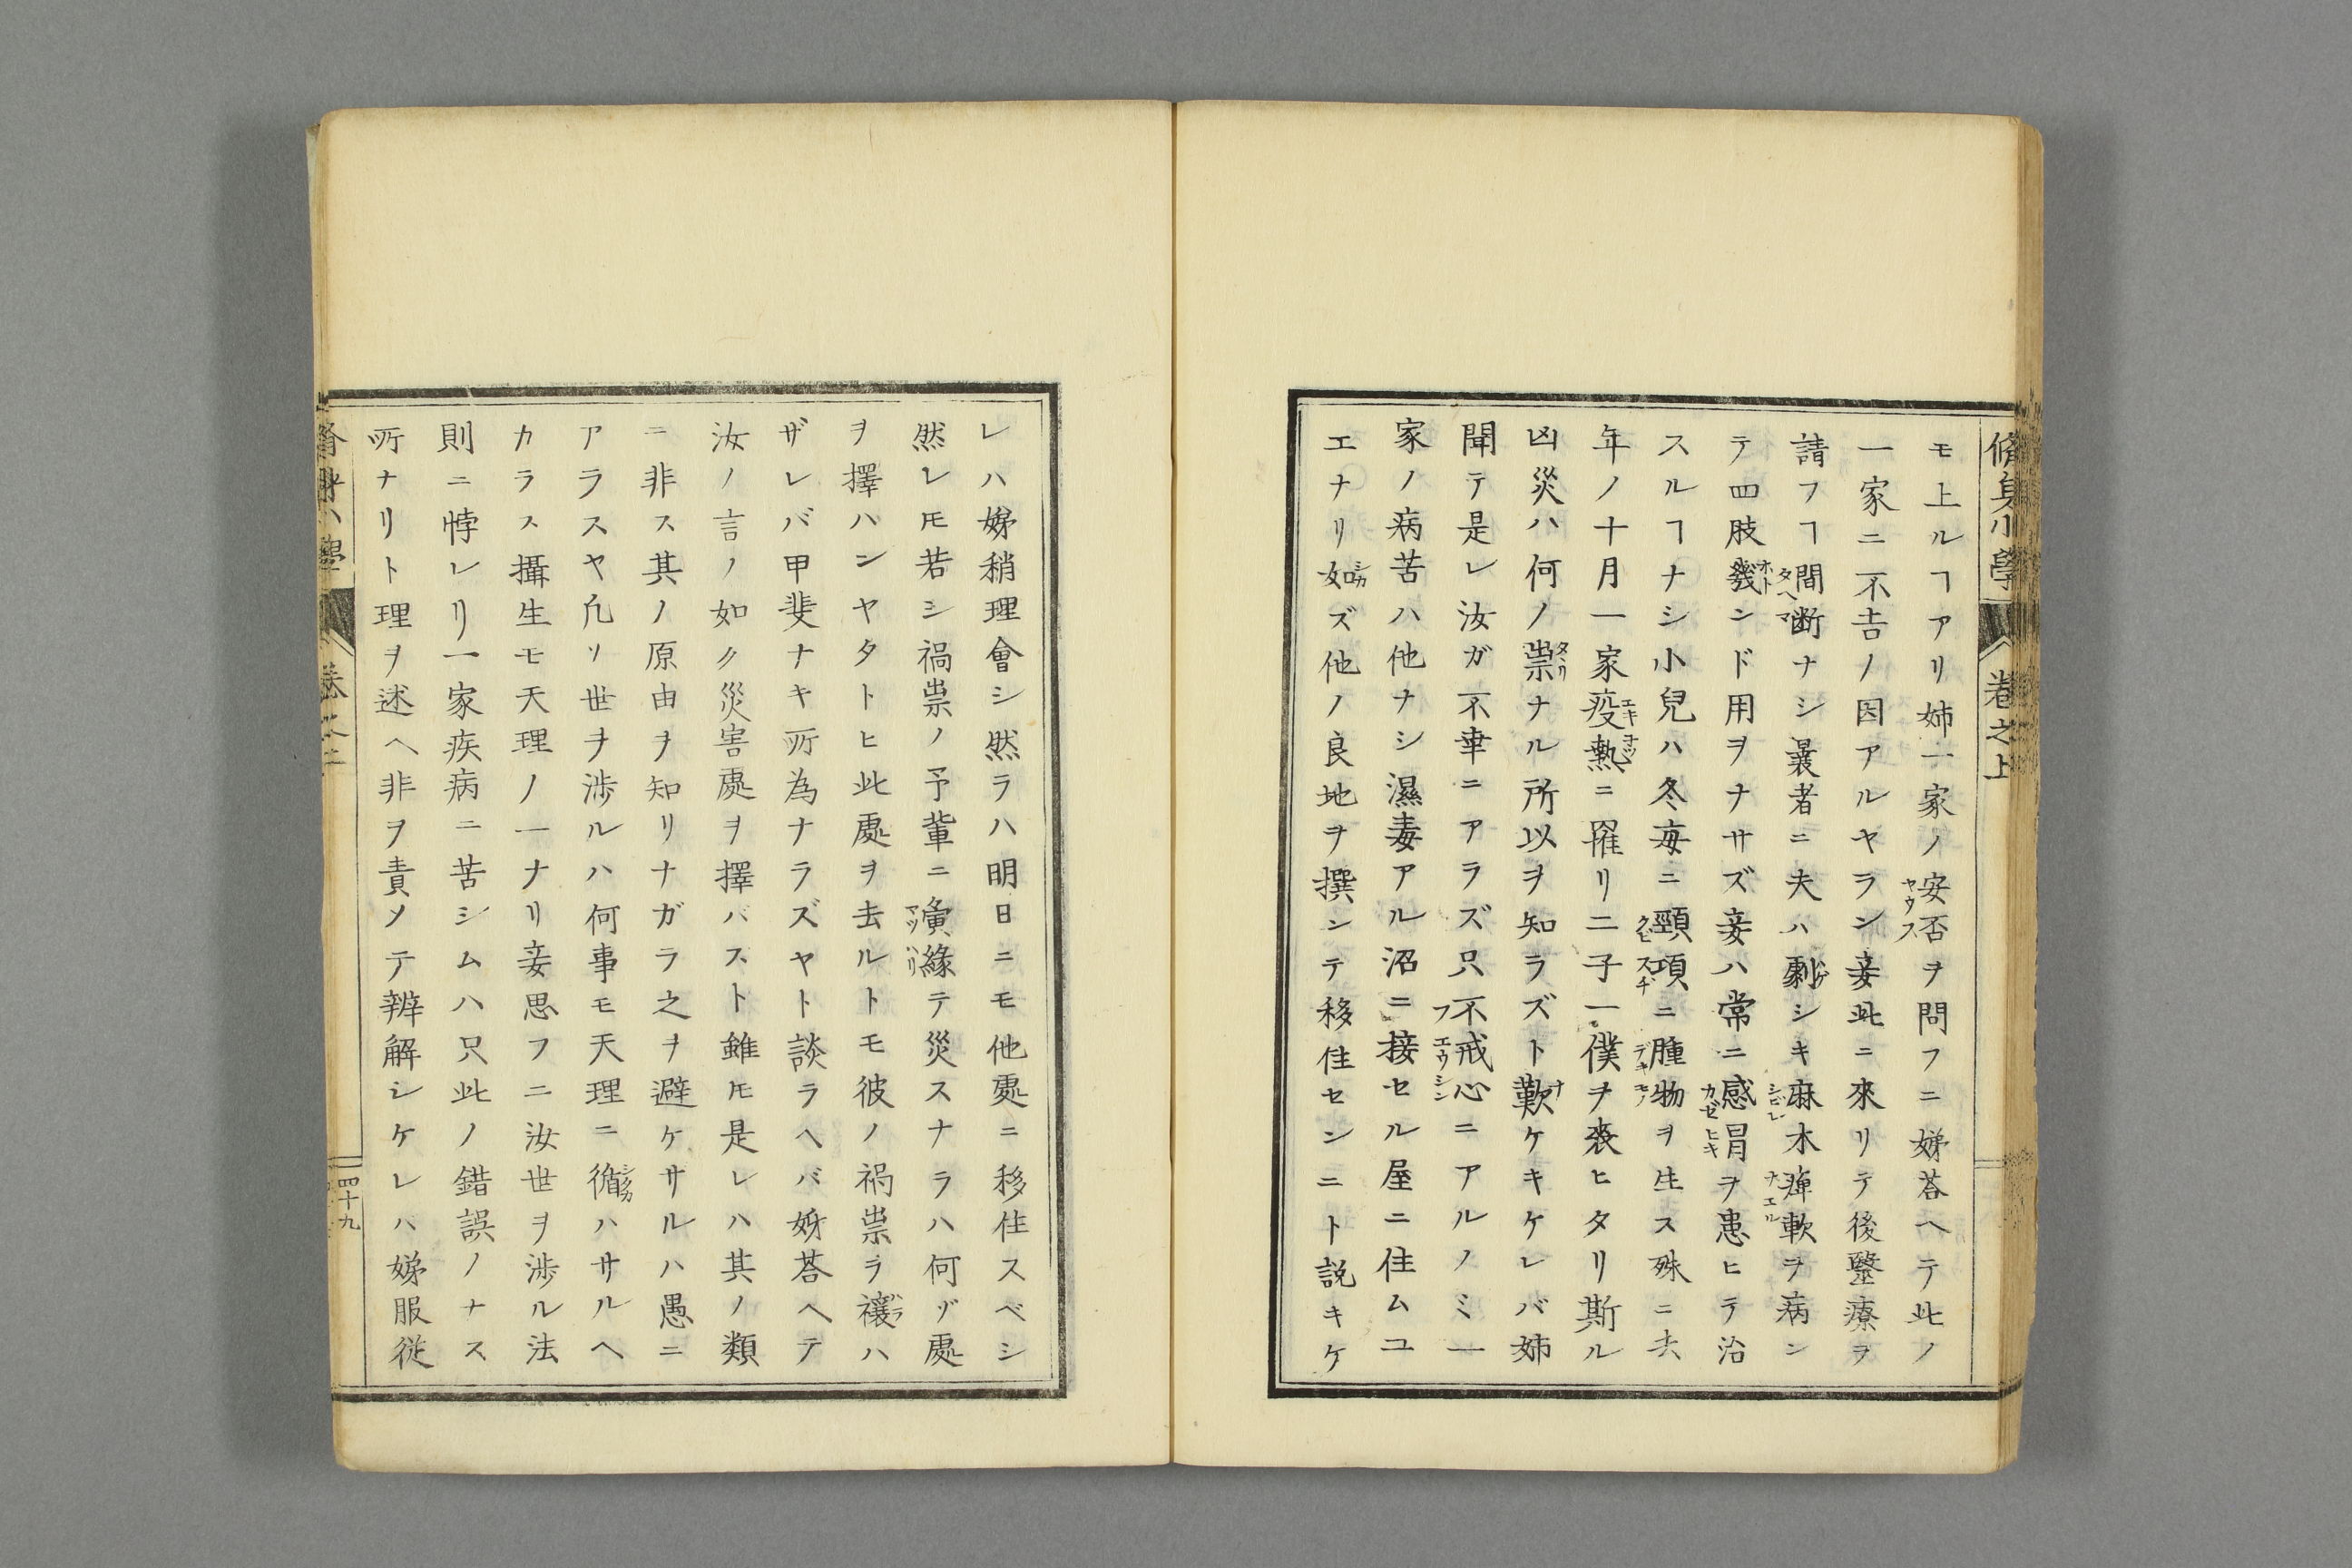 脩身小學 卷之上
モ上ルヿアリ姉一家ノ安否ヲ問フニ娣荅ヘテ此ノ
一家ニ不吉ノ因アルヤラン妾此ニ來リテ後毉療ヲ
請フヿ間断ナシ曩者ニ夫ハ劇シキ麻木痺軟ヲ病ン
テ四肢幾ンド用ヲナサズ妾ハ常ニ感冒ヲ患ヒテ治
スルヿナシ小兒ハ冬毎ニ頸項ニ腫物ヲ生ス殊ニ去
年ノ十月一家疫熱ニ罹リ二子一僕ヲ喪ヒタリ斯ル
凶災ハ何ノ祟ナル所以ヲ知ラズト歎ケキケレバ姉
聞テ是レ汝ガ不幸ニアラズ只不戒心ニアルノミ一
家ノ病苦ハ他ナシ濕毒アル沼ニ接セル屋ニ住ムユ
エナリ如ズ他ノ良地ヲ撰ンテ移住センニト説キケ
レハ娣稍理會シ然ラハ明日ニモ他處ニ移住スベシ
然レ𪜈若シ禍祟ノ予輩ニ夤緣テ災スナラハ何ゾ處
ヲ擇ハンヤタトヒ此處ヲ去ルトモ彼ノ禍祟ヲ禳ハ
ザレバ甲斐ナキ所為ナラズヤト談ラヘバ姉荅ヘテ
汝ノ言ノ如ク災害處ヲ擇バスト雖𪜈是レハ其ノ類
ニ非ス其ノ原由ヲ知リナガラ之ヲ避ケサルハ愚ニ
アラスヤ凡ソ世ヲ渉ルハ何事モ天理ニ循ハサルヘ
カラス攝生モ天理ノ一ナリ妄思フニ汝世ヲ渉ル法
則ニ悖レリ一家疾病ニ苦シムハ只此ノ錯誤ノナス
所ナリト理ヲ述ヘ非ヲ責メテ辨解シケレハ娣服従
四十九